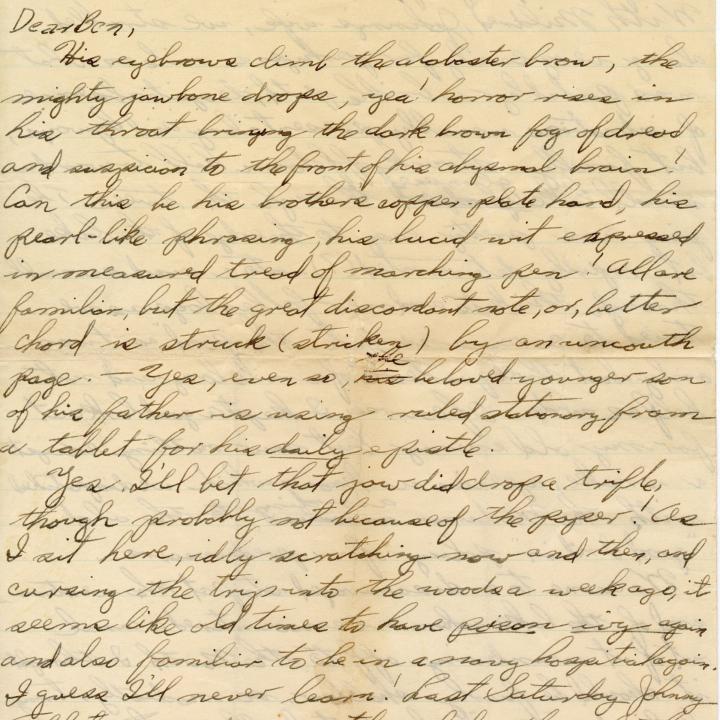 Dear Ben,
His eyebrows climb the alabaster brow, the
mighty jawbone drops, yea! horror rises in
his throat bringing the dark brown fog of dread
and suspicion to the front of his abysmal brain!
Can this be his brothers copper plate hand, his
pearl-like phrasing, his lucid wit expressed
in measured tread of marching pen! All are
familiar, but the great discordant note, or, better
chord is struck (stricken) by an uncouth
page. – Yes, even so, the beloved younger son
of his father is using ruled stationory from
a tablet for his daily epistle.
Yes I'll bet that jaw did drop a trifle,
though probably not because of the paper! As
I sit here, idly scratching now and then, and
cursing the trip into the woods a week ago, it
seems like old times to have poison ivy again
and also familiar to be in a navy hospital again.
I guess I'll never learn! Last Saturday Johnny